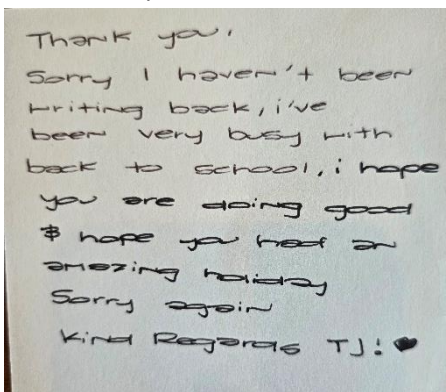 Thank you,
Sorry I haven't been
writing back, i've
been very busy with
back to school, i hope
you are doing good
& hope you had an
amazing holiday
Sorry again
Kind Regards TJ! ♥